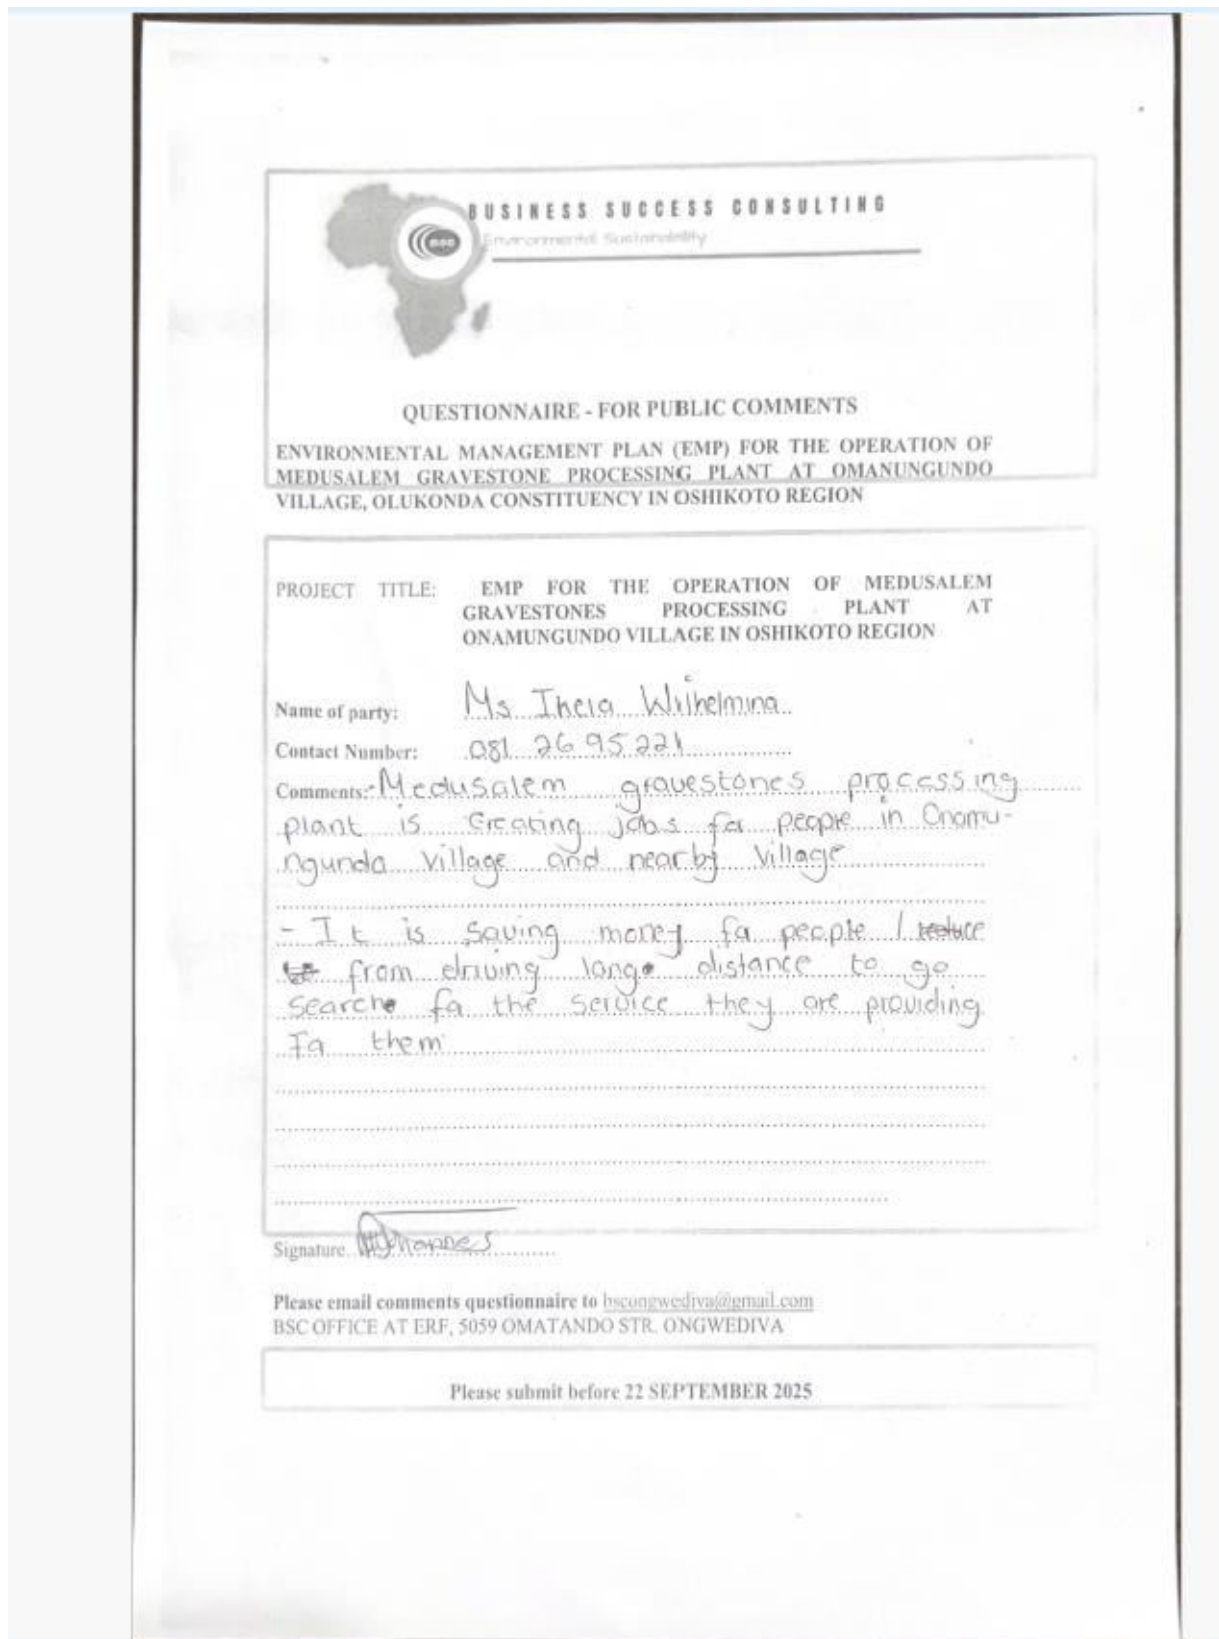 BUSINESS SUCCESS CONSULTING
Environmental Sustainability
QUESTIONNAIRE - FOR PUBLIC COMMENTS
ENVIRONMENTAL MANAGEMENT PLAN (EMP) FOR THE OPERATION OF
MEDUSALEM GRAVESTONE PROCESSING PLANT AT OMANUNGUNDO
VILLAGE, OLUKONDA CONSTITUENCY IN OSHIKOTO REGION
PROJECT TITLE: EMP FOR THE OPERATION OF MEDUSALEM
GRAVESTONES PROCESSING PLANT AT
ONAMUNGUNDO VILLAGE IN OSHIKOTO REGION
Name of party: Ms Wilhelmina
Contact Number: 081 26 95 221
Comments:- Medusalem gravestones processing
plant is creating jobs for people in Onamu-
ngunda Village and nearby Village
- It is saving money fa people /
from driving long distance to go
search fa the service they are providing
Fa them
Signature
Please email comments questionnaire to bscongwediva@gmail.com
BSC OFFICE AT ERF, 5059 OMATANDO STR. ONGWEDIVA
Please submit before 22 SEPTEMBER 2025